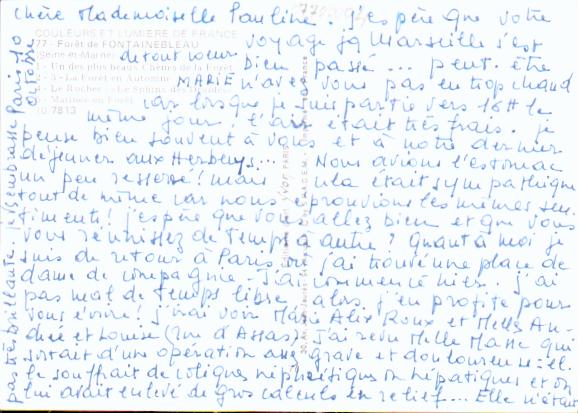 chère Mademoiselle Pauline. j'espère que votre
voyage jq Marseille s'est
bien passé... peut-être
n'avez vous pas eu trop chaud
car lorsque je suis partie vers 16H le
même jour, l'air était très frais. je
pense bien souvent à vous et à notre dernier
déjeuner aux Herbeys... Nous avions l'estomac
un peu resserré! mais cela était sympathique
tout de même car nous éprouvions les mêmes sen-
timents! j'espère que vous allez bien et que vous
vous réunissez de temps à autre? Quant à moi je
suis de retour à Paris où j'ai trouvé une place de
dame de compagnie. J'ai commencé hier. j'ai
pas mal de temps libre, alors j'en profite pour
vous écrire! j'irai voir Marie Alix Roux et Melles An-
drée et Louise (rue d'Assas). J'ai revu Melle Masse qui
sortait d'une opération assez grave et douloureuse: el-
le souffrait de coliques néphrétiques ou hépatiques et on
lui avait enlevé de gros calculs en relief... Elle n'était
pas très brillante. je vous embrasse
de tout coeur
MARIE
COULEURS ET LUMIÈRE DE FRANCE
77 - Forêt de FONTAINEBLEAU
(Seine-et-Marne)
- Un des beaux Chênes de la Forêt
- La Forêt en Automne
- Le Rocher
- Le Sphinx des Druides
10 7813